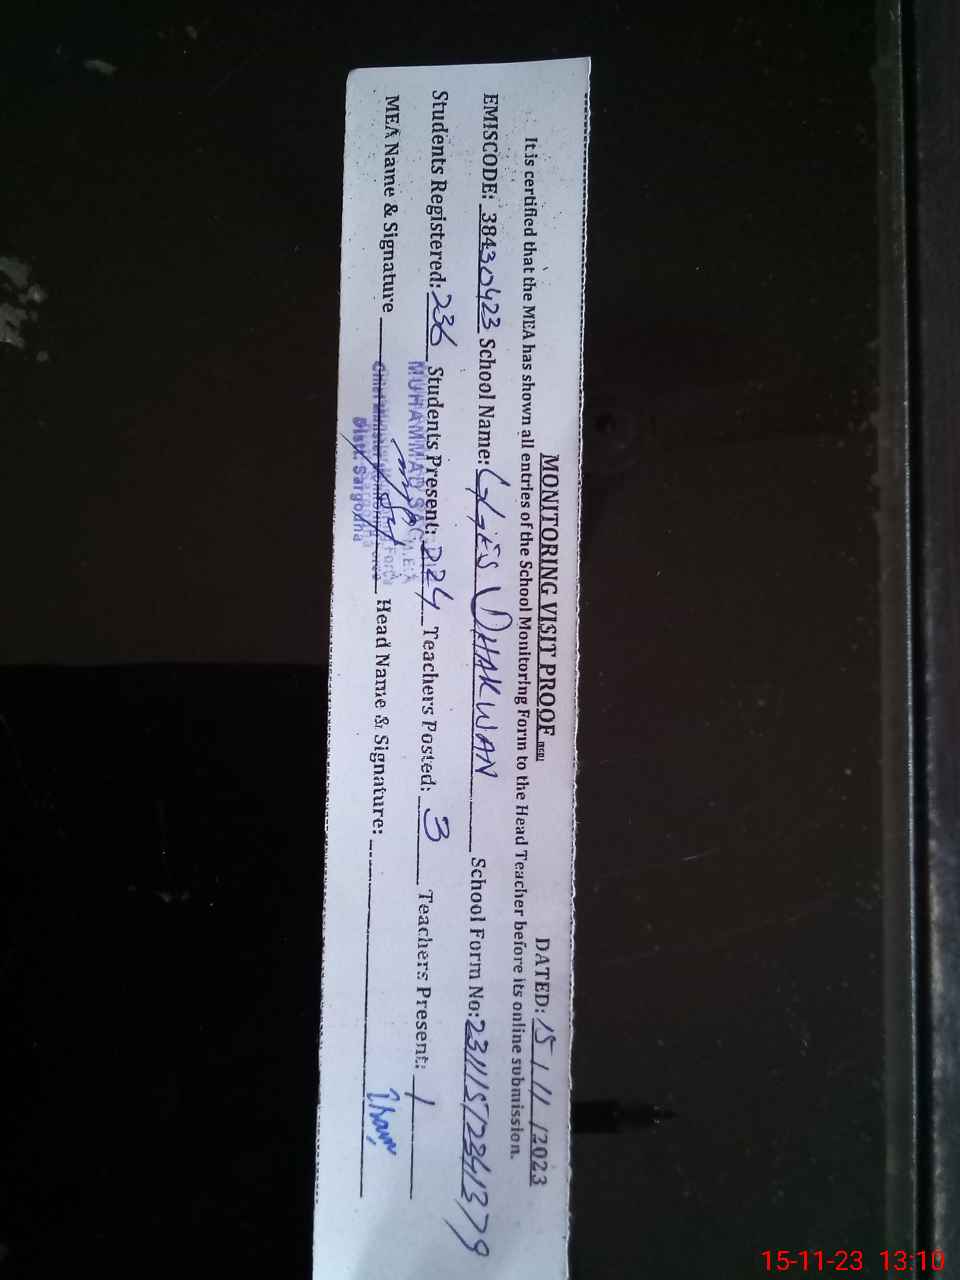 MONITORING VISIT PROOF
DATED: 15/11/2023
It is certified that the MEA has shown all entries of the School Monitoring Form to the Head Teacher before its online submission.
EMISCODE: 38430423 School Name: GGES DHAKWAN School Form No: 231115/2341379
Students Registered: 236 Students Present: 224 Teachers Posted: 3 Teachers Present: 1
MEA Name & Signature Head Name & Signature:
MUHAMMAD
Distt. Sargodha
15-11-23 13:10